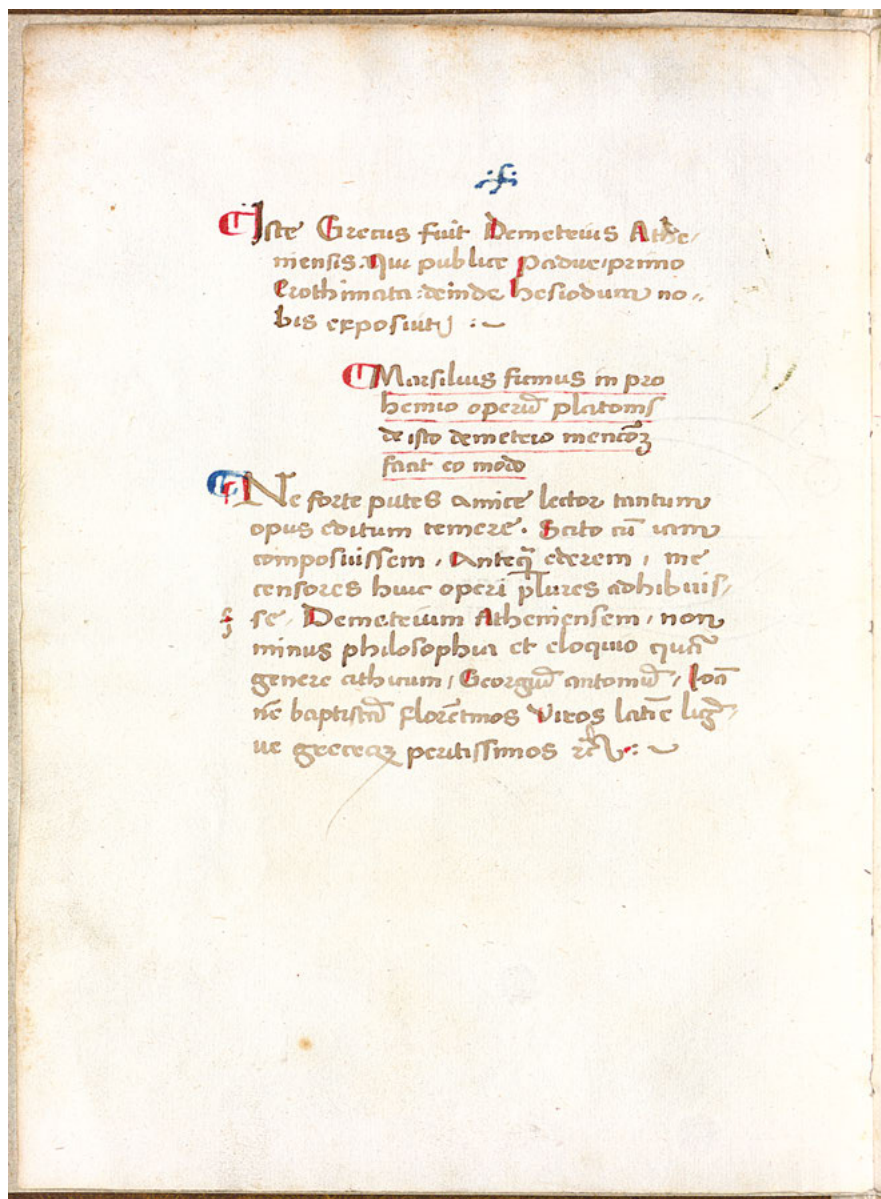 Iste Grecus fuit Demetrius Athe/
niensis. Qui publice Padue, primo
Erothimata: deinde Hesiodum no-
bis exposuit :~
Marsilius ficinus in pro
hemio operū platonis
de isto demetrio mencōꝫ
facit eo modo
Ne forte putes amice lector tantum
opus editum temere. Scito cū iam
composuissem, Anteq̄ ederem, me
censores huic operi plures adhibuis/
se. Demetrium Atheniensem, non
minus philosophia et eloquio quā
genere athicum, Georgiū antoniū, Ioā
nē baptistā florētinos Viros latīe līg
ue greceqꝫ peritissimos